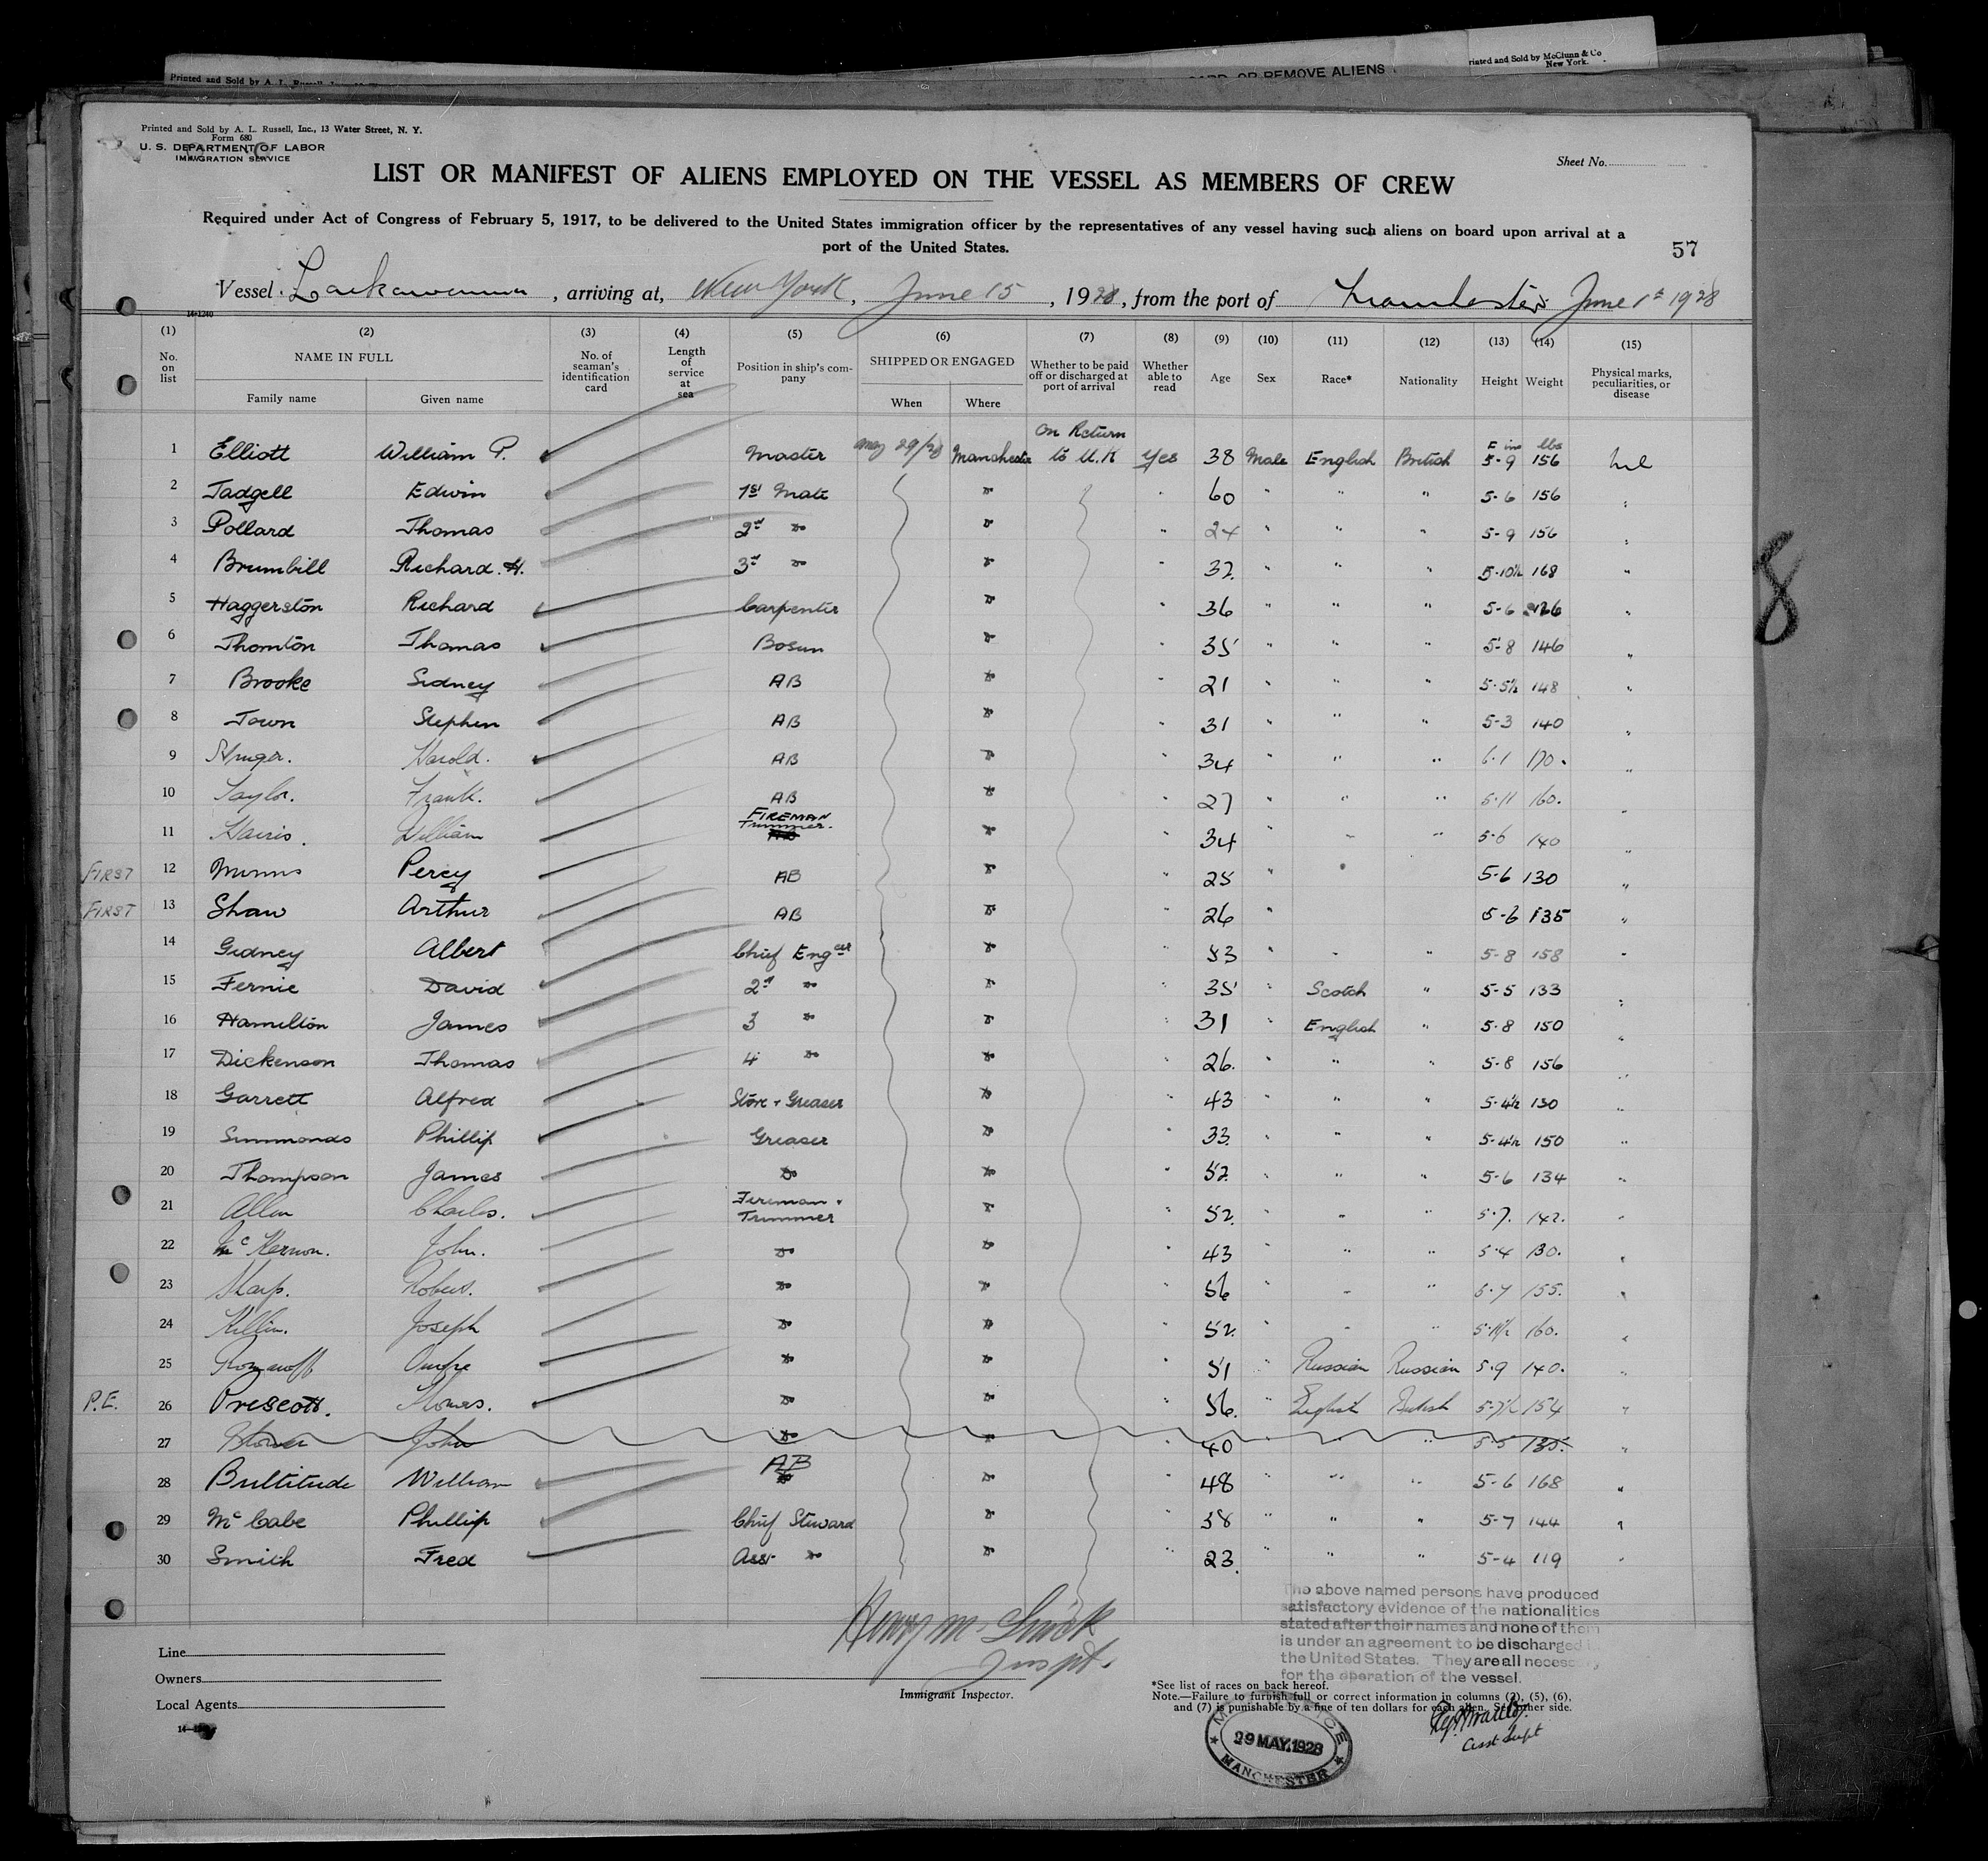 Printed and Sold by A. L. Russell, Inc.
CARD, OR REMOVE ALIENS
Printed and Sold by McClunn & Co
New York.
Printed and Sold by A. L. Russell, Inc., 13 Water Street, N. Y.
Form 680
U. S. DEPARTMENT OF LABOR
IMMIGRATION SERVICE
Sheet No.
LIST OR MANIFEST OF ALIENS EMPLOYED ON THE VESSEL AS MEMBERS OF CREW
Required under Act of Congress of February 5, 1917, to be delivered to the United States immigration officer by the representatives of any vessel having such aliens on board upon arrival at a
port of the United States.
57
Vessel Lackawanna, arriving at, New York, June 15, 1928, from the port of Manchester June 1st 1928
14-1240
(1) (2) (3) (4) (5) (6) (7) (8) (9) (10) (11) (12) (13) (14) (15)
No. on list NAME IN FULL No. of seaman's identification card Length of service at sea Position in ship's company SHIPPED OR ENGAGED Whether to be paid off or discharged at port of arrival Whether able to read Age Sex Race* Nationality Height Weight Physical marks, peculiarities, or disease
Family name Given name When Where
1 Elliott William P. Master May 29/28 Manchester On Return to U.K Yes 38 Male English British F ins 5-9 lbs 156 Nil
2 Tadgell Edwin 1st Mate " " 60 " " " 5-6 156 "
3 Pollard Thomas 2nd " " " 24 " " " 5-9 156 "
4 Brumbill Richard. H. 3rd " " " 32 " " " 5-10½ 168 "
5 Haggerston Richard Carpenter " " 36 " " " 5-6 "
6 Thornton Thomas Bosun " " 35 " " " 5-8 146 "
7 Brooke Sidney AB " " 21 " " " 5-5½ 148 "
8 Town Stephen AB " " 31 " " " 5-3 140 "
9 Harold. AB " " 34 " " " 6-1 170. "
10 Taylor. Frank. AB " " 27 " " " 5-11 160. "
11 Harris. William FIREMAN Trimmer. " " 34 " " " 5-6 140 "
FIRST 12 Munns Percy AB " " 25 " " 5-6 130 "
FIRST 13 Shaw Arthur AB " " 26 " 5-6 135 "
14 Gidney Albert Chief Engeer " " 53 " " " 5-8 158 "
15 Fernie David 2nd " " " 35 " Scotch " 5-5 133 "
16 Hamilton James 3 " " " 31 " English " 5-8 150 "
17 Dickenson Thomas 4 " " " 26. " " " 5-8 156 "
18 Garrett Alfred Store + Greaser " " 43 " " " 5-4½ 130 "
19 Simmonds Phillip Greaser " " 33. " " " 5-4½ 150 "
20 Thompson James " " " 52 " " " 5-6 134 "
21 Allen Charles. Fireman + Trimmer " " 52. " " " 5-7. 142. "
22 McKernon. John. " " " 43 " " " 5-4 130. "
23 Sharp. Robert. " " " 56 " " " 5-7 155. "
24 Killin. Joseph " " " 52. " " " 5-11½ 160. "
25 Romanoff Andre " " " 51 " Russian Russian 5-9 140. "
P.E. 26 Prescott. Thomas. " " " 56. " English British 5-7½ 154 "
27 John " " " 40 " " " 5-5 135. "
28 Bultitude William AB " " 48 " " " 5-6 168 "
29 McCabe Phillip Chief Steward " " 38 " " " 5-7 144 "
30 Smith Fred Asst " " " 23. " " " 5-4 119 "
8
The above named persons have produced
satisfactory evidence of the nationalities
stated after their names and none of them
is under an agreement to be discharged in
the United States. They are all necessary
for the operation of the vessel.
Line
Owners
Local Agents
Inspt.
Immigrant Inspector.
*See list of races on back hereof.
Note.—Failure to furnish full or correct information in columns (2), (5), (6),
and (7) is punishable by a fine of ten dollars for each alien. See other side.
Asst Supt
29 MAY. 1928
MANCHESTER